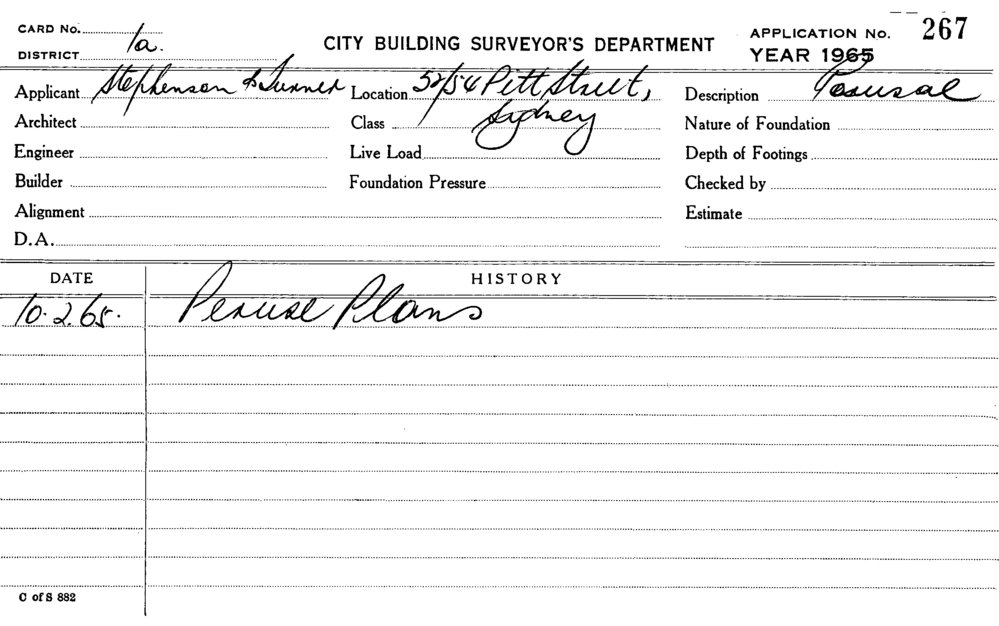 CARD No. 1a.
DISTRICT
CITY BUILDING SURVEYOR'S DEPARTMENT
APPLICATION No. 267
YEAR 1965
Applicant Stephenson & Turner Location 52/54 Pitt Street, Description Perusal
Architect Class Sydney Nature of Foundation
Engineer Live Load Depth of Footings
Builder Foundation Pressure Checked by
Alignment Estimate
D.A.
DATE HISTORY
10.2.65. Peruse Plans
C of S 882